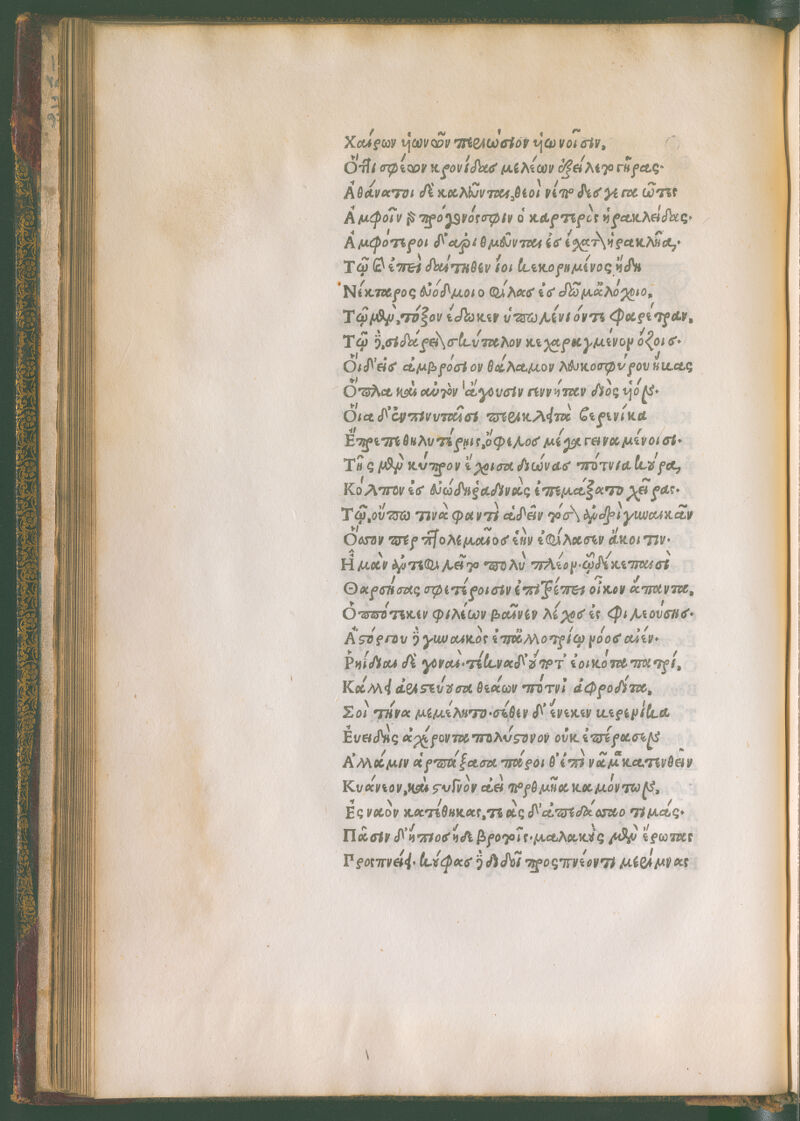 Χαίρων υἱωνῶν περιώσιον υἱωνοῖσιν,
Ὅττι σφέων κρονίδας μελέων ἐξείλετο γῆρας·
Ἀθάνατοι δὲ καλεῦνται, θεοὶ νέποδες γεγαῶτες
Ἀμφοῖν γὰρ πρόγονός σφιν ὁ καρτερὸς ἡρακλείδας·
Ἀμφότεροι δ' ἀριθμεῦνται ἐς ἔσχατον ἡρακλῆα,·
Τῷ καὶ ἐπεὶ δαίτηθεν ἴοι κεκορημένος ἤδη
Νέκταρος εὐόδμοιο φίλας ἐς δῶμ' ἀλόχοιο,
Τῷ μὲν, τόξον ἔδωκεν ὑπωλένιόν τε φαρέτραν,
Τῷ δὲ, σιδάρειον σκύταλον κεχαραγμένον ὄζοις·
Οἱ δ' εἰς ἀμβρόσιον θάλαμον λευκοσφύρου ἥβας
Ὅπλα καὶ αὐτὸν ἄγουσιν γεννήταν διὸς υἱόν·
Οἵα δ' ἐν πινυταῖσι περικλειτὰ βερενίκα
Ἔπρεπε θηλυτέρῃς, ὄφελος μέγα γειναμένοισι·
Τῆς μὲν κύπρον ἔχοισα διώνας πότνια κούρα,
Κόλπον ἐς εὐώδη ῥαδινὰς ἐπεμάξατο χεῖρας·
Τῷ, οὔπω τινὰ φαντὶ ἁδεῖν τόσον ἀνδρὶ γυναικῶν
Ὅσον περ πτολεμαῖος ἑὴν ἐφίλασεν ἄκοιτιν·
Ἦ μὰν ἀντεφιλεῖτο πολὺ πλέον· ὧδέ κε παισὶ
Θαρσήσας σφετέροισιν ἐπιτρέπει οἶκον ἅπαντα,
Ὁππότε κεν φιλέων βαίνεν λέχος ἐς φιλεούσης·
Ἀστόργου δὲ γυναικὸς ἐπ' ἀλλοτρίῳ νόος αἰέν·
Ῥηίδιαι δὲ γοναὶ· τέκνα δ' οὔποτ' ἐοικότα πατρί,
Κάλλει ἀριστεύουσα θεάων πότνι' ἀφροδίτα,
Σοὶ τήνα μεμέλητο· σέθεν δ' ἕνεκεν βερενίκα
Εὐειδὴς ἀχέροντα πολύστονον οὐκ ἐπέρασεν
Ἀλλά μιν ἁρπάξασα πάροιθ' ἐπὶ νᾶμα κατενθεῖν
Κυάνεον, καὶ στυγνὸν ἀεὶ πορθμῆα καμόντων,
Ἐς ναὸν κατέθηκας, τεᾶς δ' ἀπεδάσσαο τιμᾶς·
Πᾶσιν δ' ἤπιος ἥδε βροτοῖς· μαλακοὺς μὲν ἔρωτας
Προςπνείει· κούφας δὲ διδοῖ προςπνέοντι μερίμνας